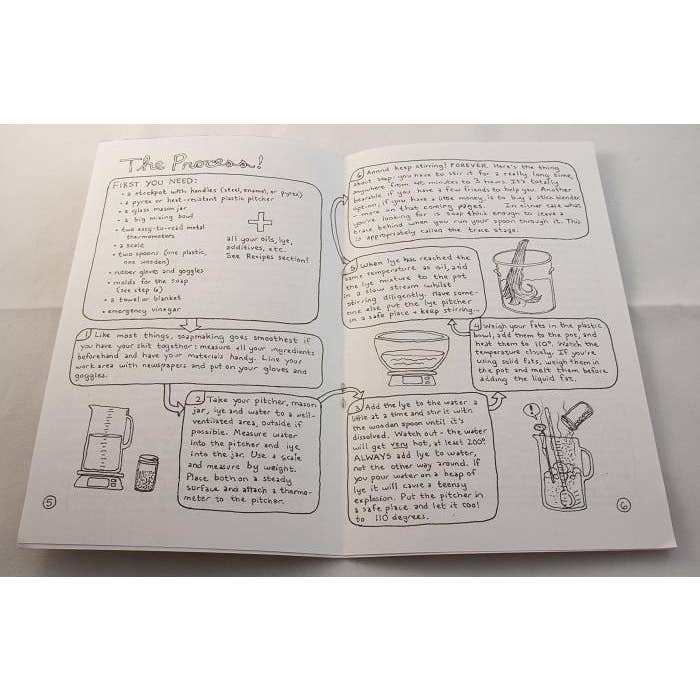 The Process!
FIRST YOU NEED:
• a stockpot with handles (steel, enamel, or pyrex)
• a pyrex or heat-resistant plastic pitcher
• a glass mason jar
• a big mixing bowl
• two easy-to-read metal
thermometers
• a scale
• two spoons (one plastic,
one wooden)
• rubber gloves and goggles
• molds for the soap
(see step 6)
• a towel or blanket
• emergency vinegar
+
all your oils, lye,
additives, etc.
See Recipes section!
1 Like most things, soapmaking goes smoothest if
you have your shit together: measure all your ingredients
beforehand and have your materials handy. Line your
work area with newspapers and put on your gloves and
goggles.
2 Take your pitcher, mason
jar, lye and water to a well-
ventilated area, outside if
possible. Measure water
into the pitcher and lye
into the jar. Use a scale
and measure by weight.
Place both on a steady
surface and attach a thermo-
meter to the pitcher.
5
6 Annnd keep stirring! FOREVER. Here's the thing
about soap: you have to stir it for a really long time,
anywhere from 45 minutes to 3 hours. It's totally
bearable if you have a few friends to help you. Another
option, if you have a little money, is to buy a stick blender
- more on that coming pages. In either case what
you're looking for is soap thick enough to leave a
trace behind when you run your spoon through it. This
is appropriately called the trace stage.
5 When lye has reached the
same temperature as oil, add
the lye mixture to the pot
in a slow stream whilst
stirring diligently. Have some-
one else put the lye pitcher
in a safe place + keep stirring...
4 Weigh your fats in the plastic
bowl, add them to the pot, and
heat them to 110°. Watch the
temperature closely. If you're
using solid fats, weigh them in
the pot and melt them before
adding the liquid fat.
3 Add the lye to the water a
little at a time and stir it with
the wooden spoon until it's
dissolved. Watch out - the water
will get very hot, at least 200°
ALWAYS add lye to water,
not the other way around. If
you pour water on a heap of
lye it will cause a teensy
explosion. Put the pitcher in
a safe place and let it cool
to 110 degrees.
!
6